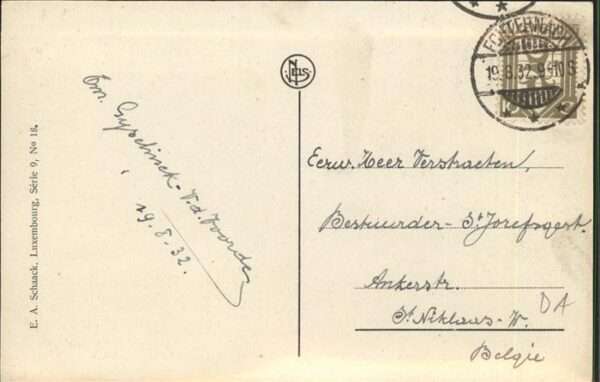 E. A. Schaack, Luxembourg, Série 9, No 18.
Em. Gyselinck - V. d. Voorde
19.8.32.
NELS
ECHTERNACH
19.8.32. 9-10 S
Eerw. Heer Verstraeten,
Bestuurder - St Jozefsgest.
Ankerstr.
St Niklaus - W.
België
DA